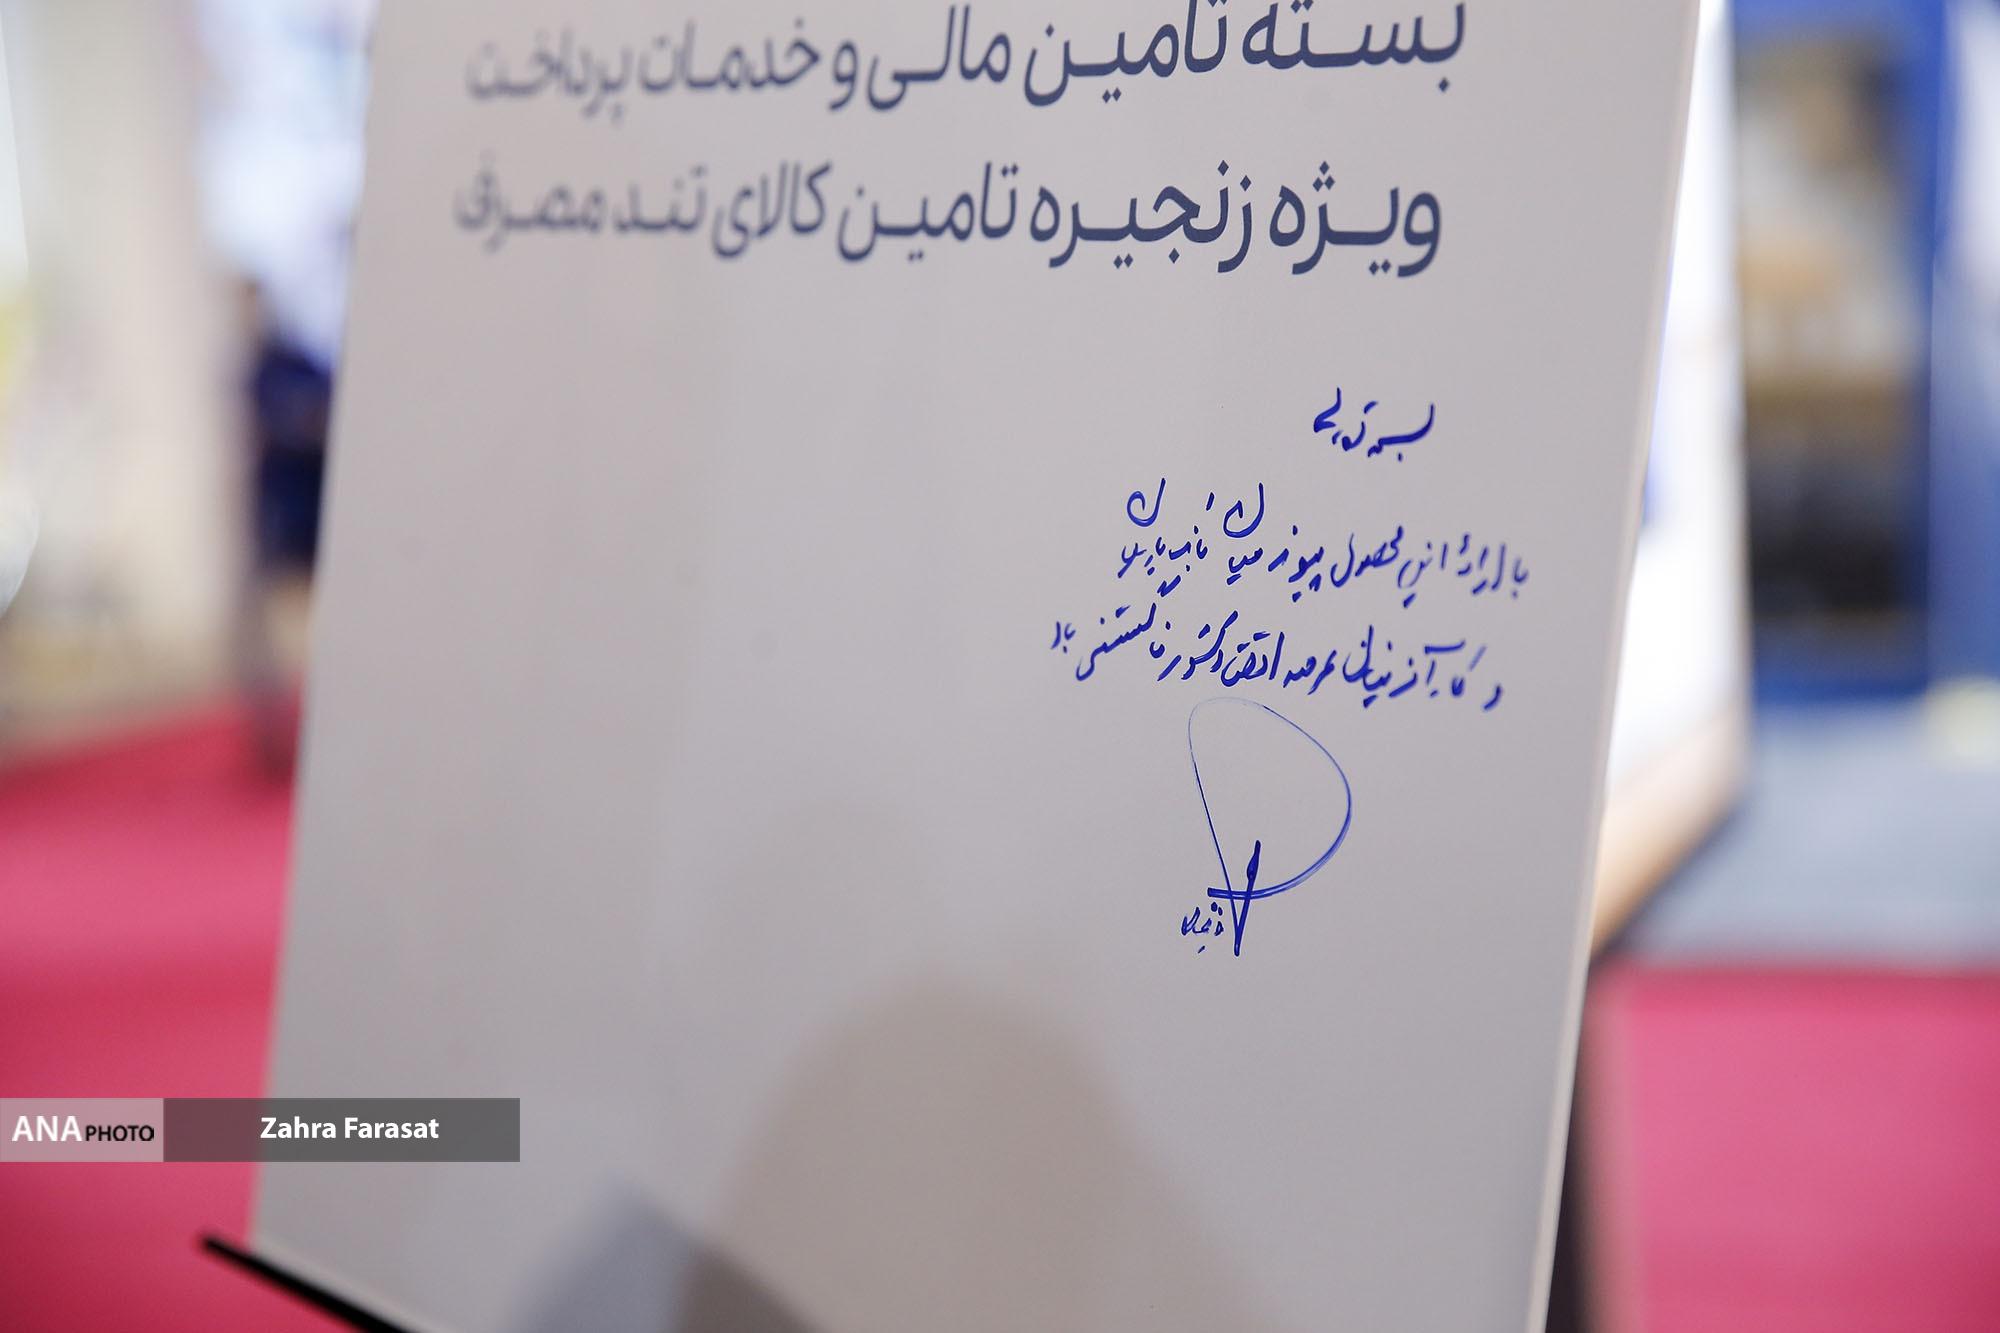 بسته تامین مالی و خدمات پرداخت
ویژه زنجیره تامین کالای تند مصرف
بسمه تعالی
با ارائه این محصول پیوند میان بانک
و کارآفرینان عرصه اقتصاد کشور ناگسستنی باد
ANA PHOTO
Zahra Farasat